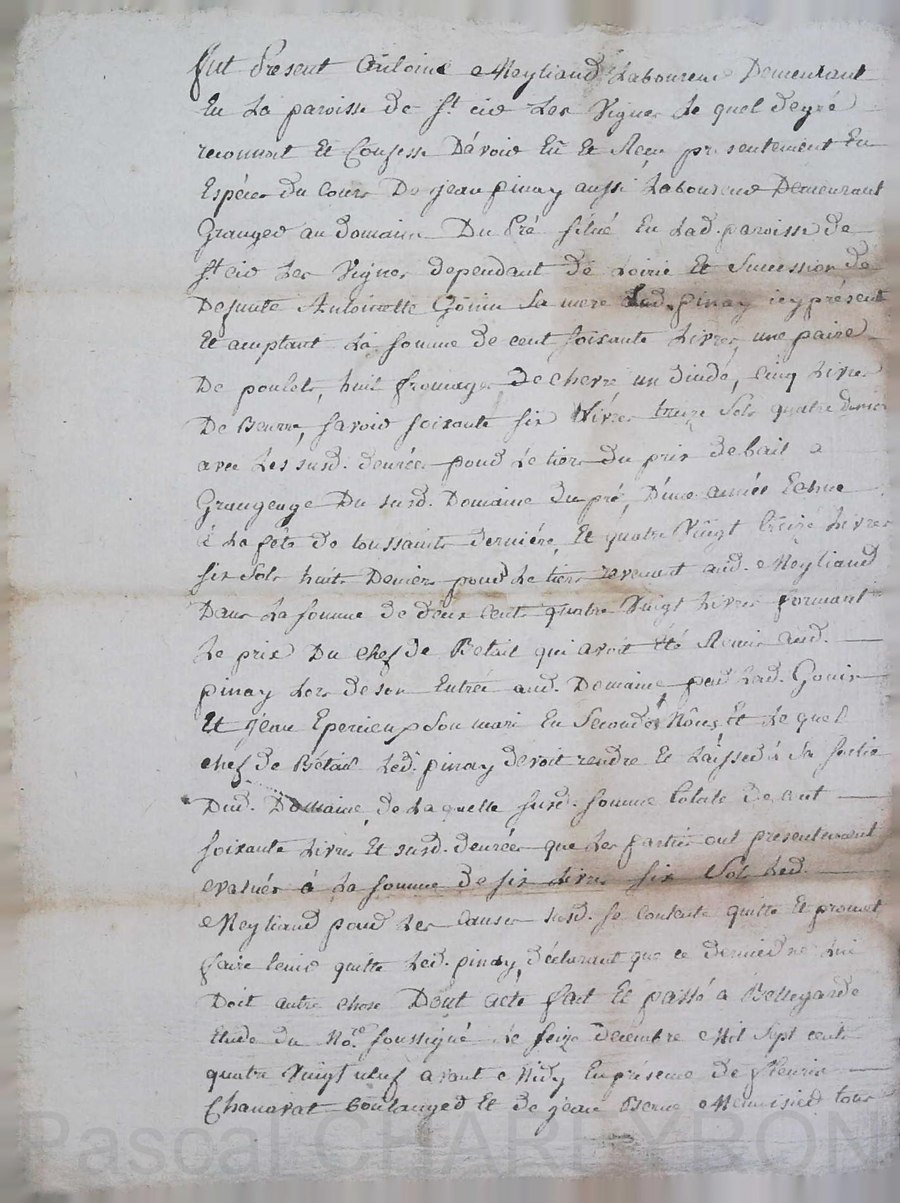 fut Présent Antoine Meyliand Laboureur Demeurant
En La paroisse de St. cir Les Vignes Le quel de gré
reconnoit Et Confesse D'avoir Eû Et Reçu présentement En
Espéces du Cours De jean pinay aussi Laboureur Demeurant
Granger au domaine Du Pré situé En Lad. paroisse de
St. cir Les Vignes dependant de Loirie Et Succession de
Defunte Antoinette Gonin Sa mere Led. pinay icy présent
Et acceptant La somme de cent soixante Livres, une paire
De poulets, huit fromages de chevre un dinde, cinq Livres
De Beurre, savoir soixante six Livres treize Sols quatre deniers
avec Les susd. denrées pour Le tiers du prix de bail a
Grangeage Du susd. Domaine du pré, D'une année Echue
à La fête de toussaints derniére, Et quatre Vingt treize Livres
six Sols huits Deniers pour Le tiers revenant aud. Meyliand
Dans La somme de deux Cents quatre Vingt Livres formant
Le prix Du chef de Betail qui avoit été Remis aud.
pinay Lors de son Entrée aud. Domaine par Lad. Gonin
Et jean Epercieux Son mari En Secondes Nôces, Et Le quel
chef de Bétail Led. pinay devoit rendre Et Laisser à Sa sortie
Dud. Domaine, de La quelle susd. somme totale de cent
soixante Livres Et susd. denrées que Les parties ont presentement
evaluées à La somme de six Livres six Sols Led.
Meyliand pour Les Causes susd. se contente quitte Et promet
faire tenir quitte Led. pinay, déclarant que ce dernier ne Lui
Doit autre chose Dont acte fait Et passé a Bellegarde
Etude du No.re soussigné Le seize Décembre Mil Sept cent
quatre Vingt neuf avant Midy En présence de fleurie
Chanavat Boulanger Et de jean Berne Menuisier tous
Pascal CHAREYRON